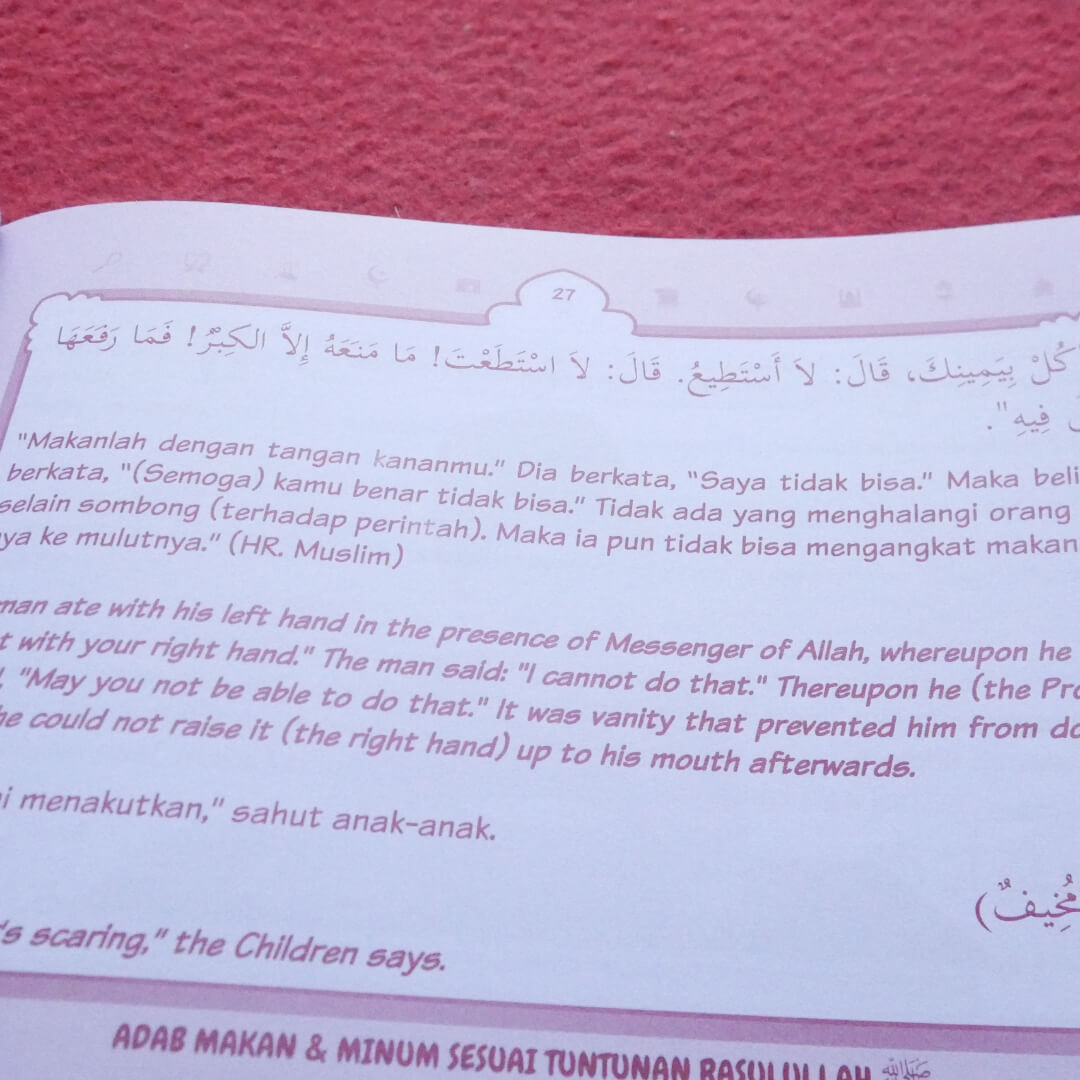 27
كُلْ بِيَمِينِكَ، قَالَ: لاَ أَسْتَطِيعُ. قَالَ: لاَ اسْتَطَعْتَ! مَا مَنَعَهُ إِلاَّ الكِبْرُ! فَمَا رَفَعَهَا
فِيهِ".
"Makanlah dengan tangan kananmu." Dia berkata, "Saya tidak bisa." Maka beli
berkata, "(Semoga) kamu benar tidak bisa." Tidak ada yang menghalangi orang
selain sombong (terhadap perintah). Maka ia pun tidak bisa mengangkat makan
ya ke mulutnya." (HR. Muslim)
man ate with his left hand in the presence of Messenger of Allah, whereupon he
t with your right hand." The man said: "I cannot do that." Thereupon he (the Pro
"May you not be able to do that." It was vanity that prevented him from do
he could not raise it (the right hand) up to his mouth afterwards.
i menakutkan," sahut anak-anak.
مُخِيفٌ)
's scaring," the Children says.
ADAB MAKAN & MINUM SESUAI TUNTUNAN RASULULLAH ﷺ